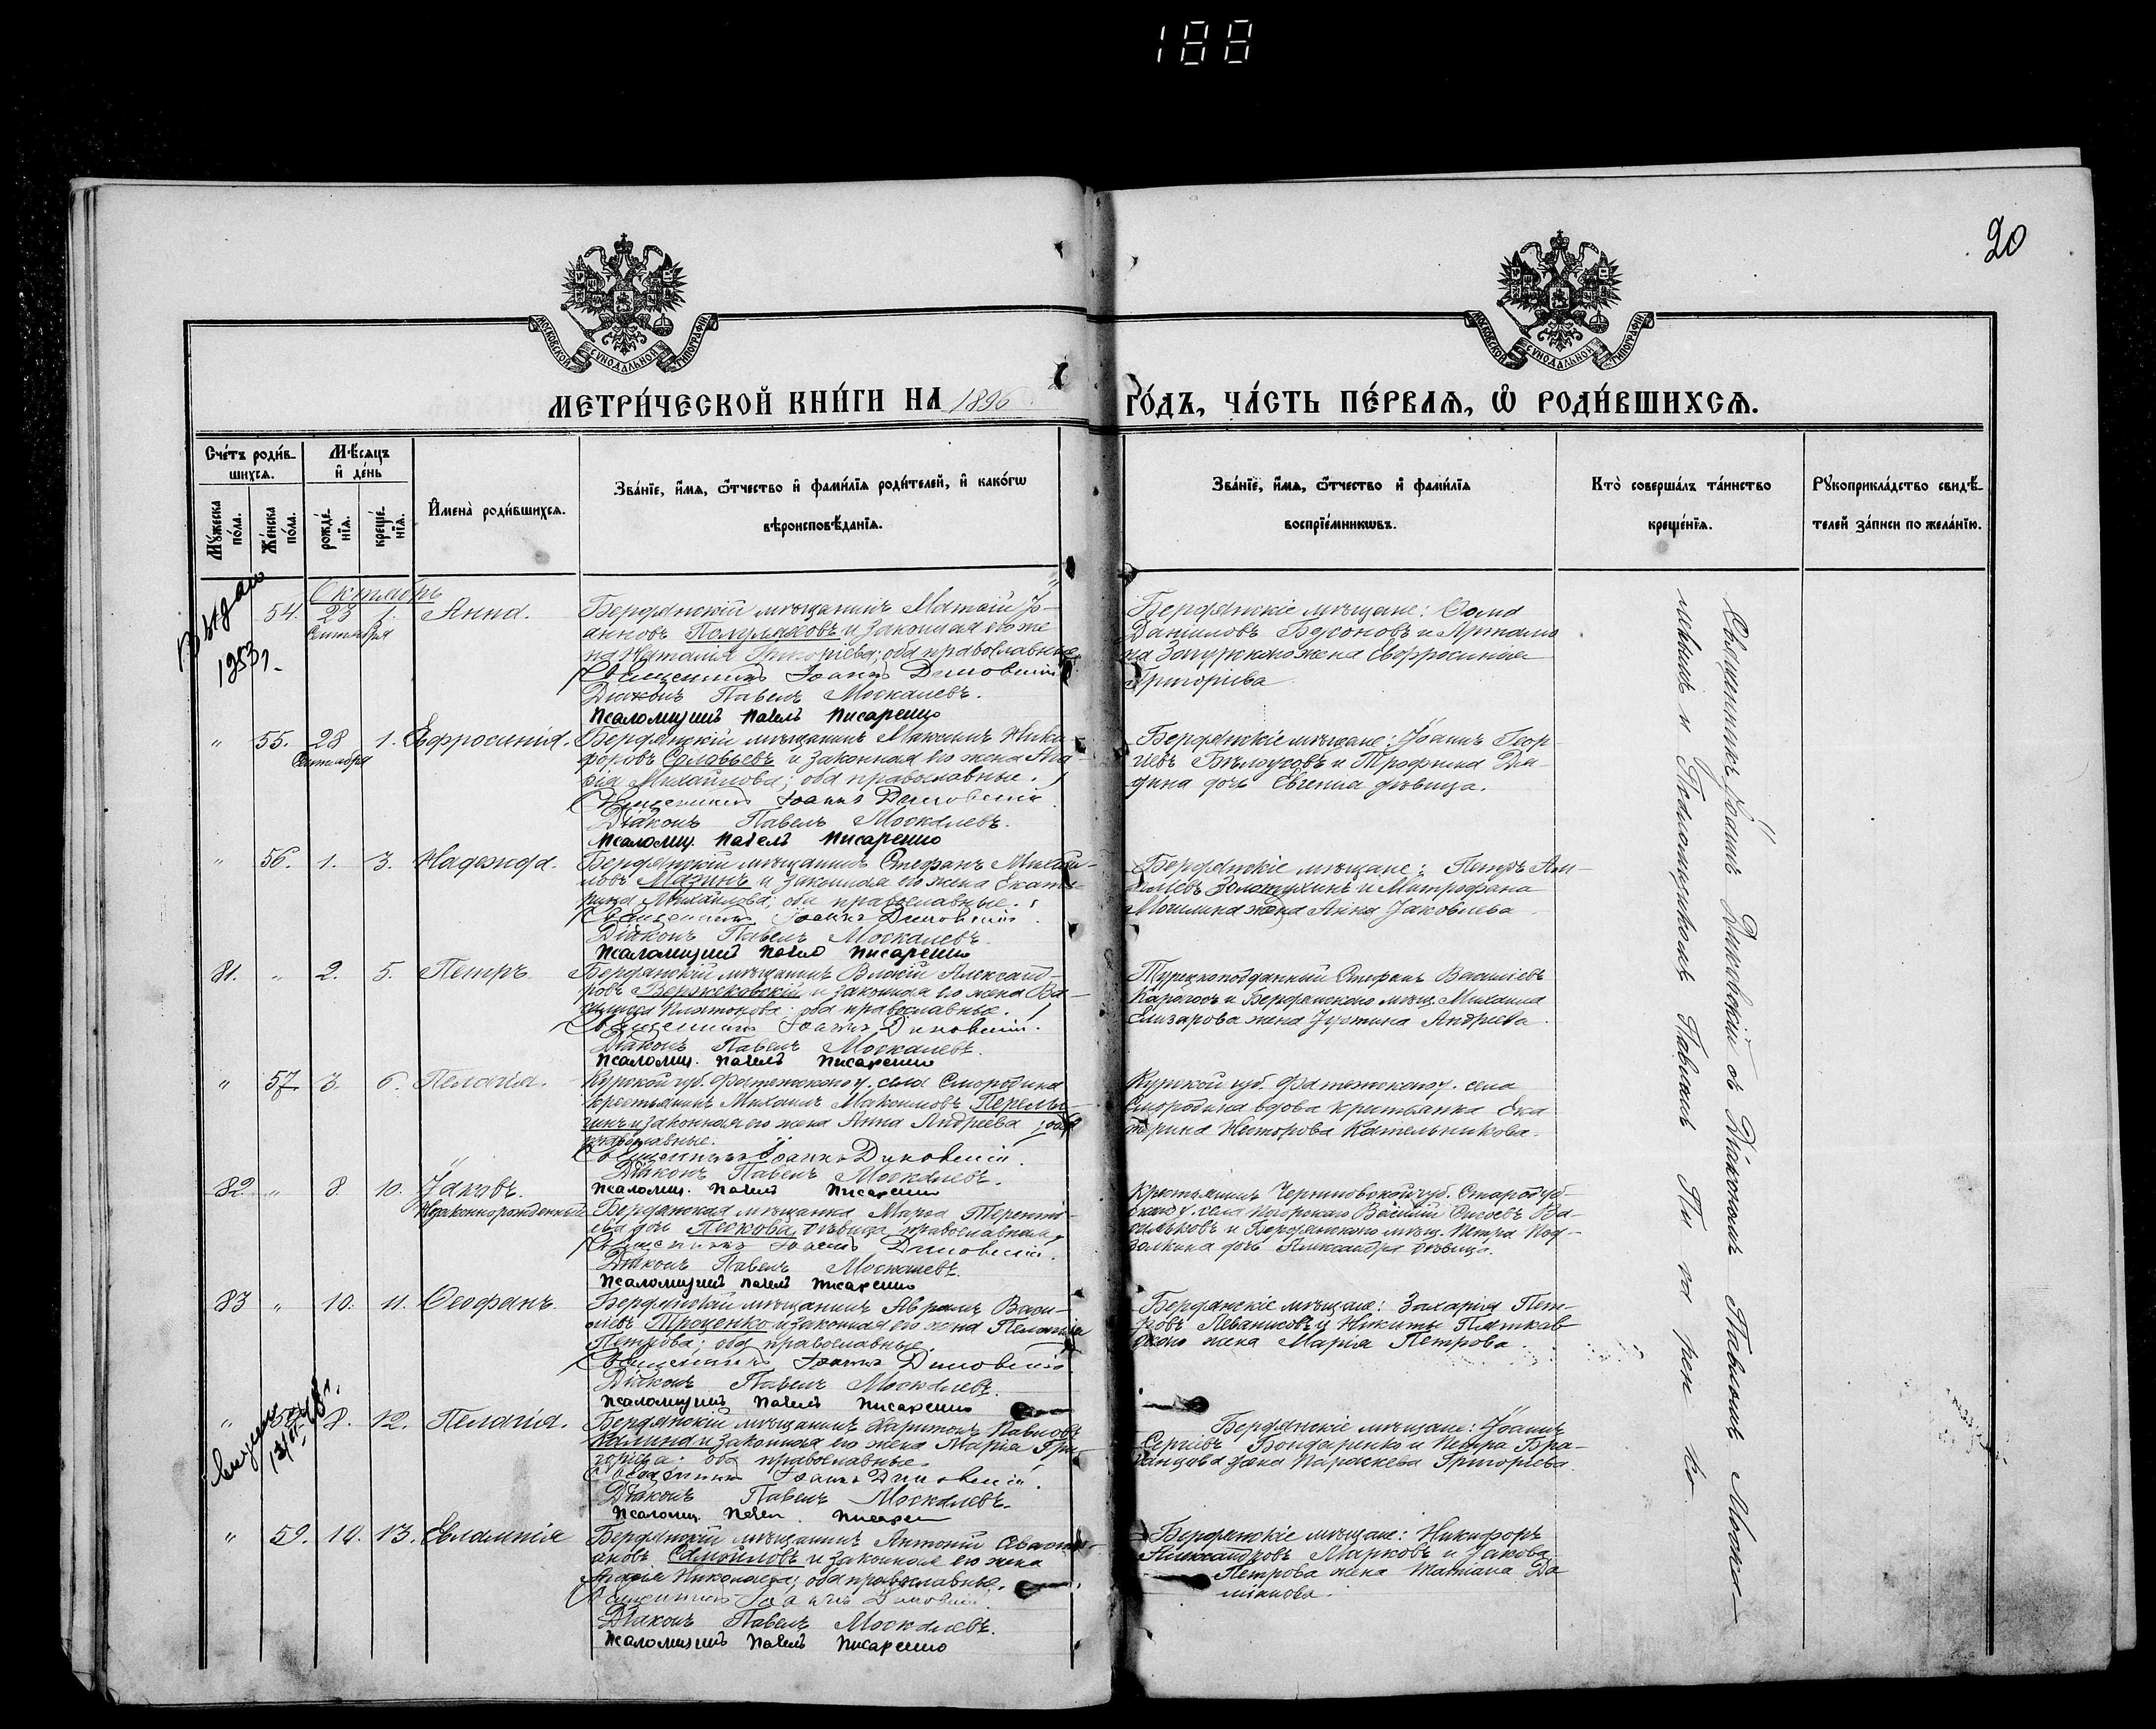 188
20
МОСКОВСКОЙ СѴНОДАЛЬНОЙ ТИПОГРАФІИ
МОСКОВСКОЙ СѴНОДАЛЬНОЙ ТИПОГРАФІИ
МЕТРИ́ЧЕСКОЙ КНИ́ГИ НА 1896 ГО́ДЪ, ЧА́СТЬ ПЕ́РВАѦ, Ѡ РОДИ́ВШИХСѦ.
Сче́тъ роди́в-
шихсѧ.
Мѣ́сѧцъ
и҆ де́нь
Мꙋ́жеска
по́ла.
Же́нска
по́ла.
рожде́-
нїѧ.
креще́-
нїѧ.
И҆мена̀ роди́вшихсѧ.
Зва́нїе, и҆́мѧ, ѻ҆́тчество и҆ фами́лїѧ роди́телей, и҆ како́гѡ
вѣроисповѣ́данїѧ.
Зва́нїе, и҆́мѧ, ѻ҆́тчество и҆ фами́лїѧ
воспрїе́мникѡвъ.
Кто̀ соверша́лъ та́инство
креще́нїѧ.
Рꙋкоприкла́дство свидѣ́-
телей за́писи по жела́нїю.
Октябрь
54. 23 1. Анна.
Сентября
Бердянскій мѣщанинъ Матѳій Іо-
анновъ и законная его же
на Наталія Григоріева; оба православные
Священникъ Іоаннъ Диковскій
Діаконъ Павелъ Москалевъ.
Псаломщикъ Павелъ Писаренко
Бердянскіе мѣщане: Ѳома
Даниловъ и Артема
жена Евфросинія
Григоріева
" 55. 28 1. Евфросинія.
Сентября
Бердянскій мѣщанинъ Максимъ Ники-
форовъ Соловьевъ и законная его жена Ма-
рія Михайлова; оба православные.
Священникъ Іоаннъ Диковскій
Діаконъ Павелъ Москалевъ.
Псаломщ. Павелъ Писаренко
Бердянскіе мѣщане: Іоаннъ Геор-
гіевъ Бѣлоусовъ и Трофима
дочь Евгенія дѣвица.
" 56. 1. 3. Надежда.
Бердянскій мѣщанинъ Стефанъ Михай-
ловъ Мазинъ и законная его жена Екате-
рина Михайлова; оба православные.
Священникъ Іоаннъ Диковскій
Діаконъ Павелъ Москалевъ.
Псаломщикъ Павелъ Писаренко
Бердянскіе мѣщане: Петръ
Золотухинъ и Митрофана
Могилина жена Анна Іаковлева
81. " 2. 5. Петръ.
Бердянскій мѣщанинъ Власій Александ-
ровъ Вержековскій и законная его жена Ва-
Платонова; оба православные.
Священникъ Іоаннъ Диковскій.
Діаконъ Павелъ Москалевъ.
Псаломщ. Павелъ Писаренко
Турецкоподданный Стефанъ Василіевъ
и Бердянскаго мѣщ. Михаила
Елизарова жена Іустина Андреева.
" 57. 3. 6. Пелагія.
Курской губ. Фатежскаго у. села Смородина
крестьянинъ Михаилъ Максимовъ
и законная его жена Анна Андреева; оба
православные.
Священникъ Іоаннъ Диковскій.
Діаконъ Павелъ Москалевъ.
Псаломщ. Павелъ Писаренко
Курской губ. Фатежскаго у. села
Смородина вдова крестьянка Ека
терина Несторова Котельникова.
82 " 8. 10. Іаковъ.
Незаконнорожденный
Бердянская мѣщанка Марѳа Терентi-
ева дочь Пескова, дѣвица, православная.
Священникъ Іоаннъ Диковскій.
Діаконъ Павелъ Москалевъ.
Псаломщикъ Павелъ Писаренко
Крестьянинъ Черниговской губ. Стародуб-
скаго у. села Василій Ва-
сильковъ и Бердянскаго мѣщ. Петра Под-
дочь Александра дѣвица.
83 " 10. 11. Ѳеофанъ.
Бердянскій мѣщанинъ Аврамъ Васи-
ліевъ Троценко и законная его жена Пелагія
Петрова; оба православные.
Священникъ Іоаннъ Диковскій
Діаконъ Павелъ Москалевъ.
Псаломщикъ Павелъ Писаренко
Бердянскіе мѣщане: Захарія Пет-
ровъ и Никиты
жена Марія Петрова.
" 8. 12. Пелагія.
Бердянскій мѣщанинъ Харитонъ Павловъ
Калина и законная его жена Марія Гри-
горіева; оба православные.
Священникъ Іоаннъ Диковскій.
Діаконъ Павелъ Москалевъ.
Псаломщ. Павел. Писарен
Бердянскіе мѣщане: Іоаннъ
Сергіевъ Бондаренко и Петра
жена Параскева Григоріева
" 59. 10. 13. Евлампія
Бердянскій мѣщанинъ Антоній Севасти-
ановъ Самойловъ и законная его жена
Николаева; оба православные.
Священникъ Іоаннъ Диковскій.
Діаконъ Павелъ Москалевъ.
Псаломщикъ Павелъ Писаренко
Бердянскіе мѣщане: Никифоръ
Александровъ Марковъ и Іакова
Петрова жена Татіана Да
міанова.
Священникъ Іоаннъ Диковскій съ Діакономъ Павломъ Моска-
левымъ и Псаломщикомъ Павломъ Пи са рен ко